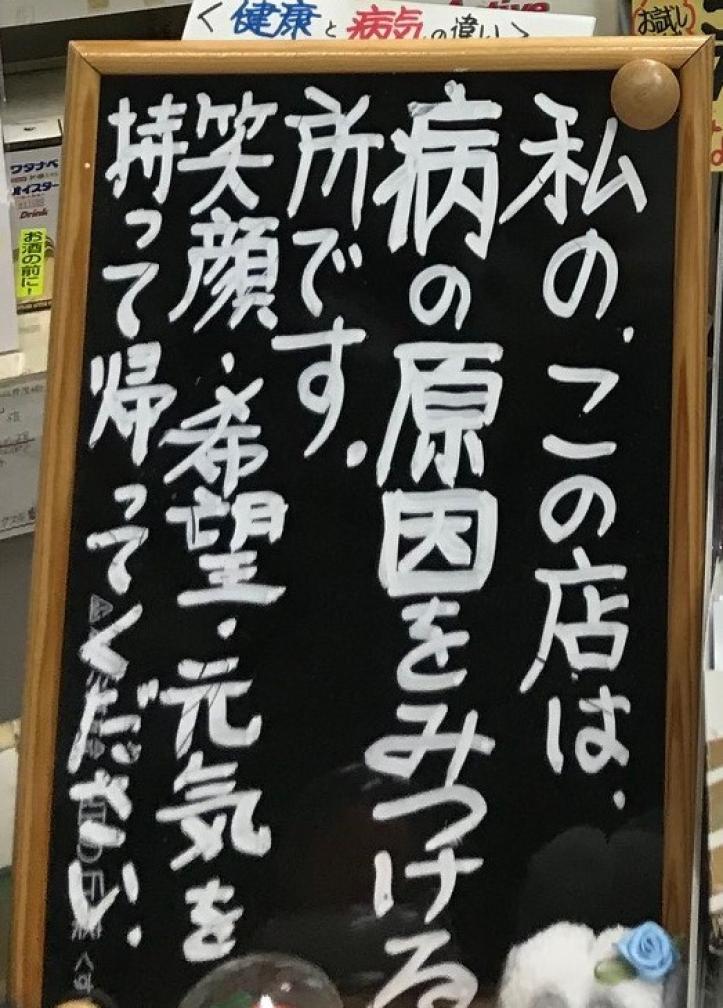 <健康と病気の違い>
お試し
私の、この店は、
病の原因をみつける
所です。
笑顔・希望・元気を
持って帰ってください。
ワタナベ
オイスター
Drink
お酒の前に!